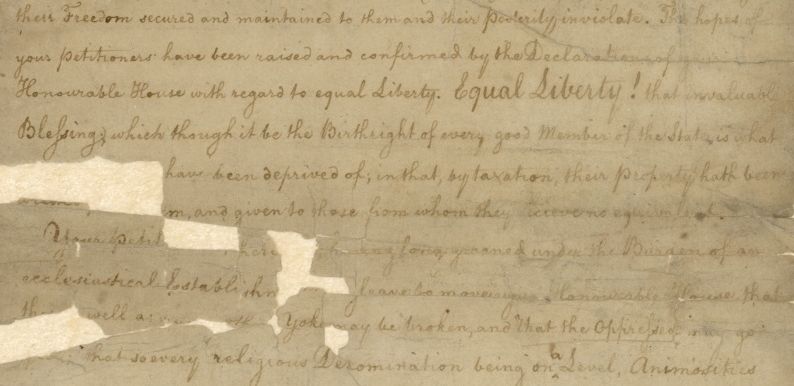 their Freedom secured and maintained to them and their Posterity inviolate. The hopes of
your petitioners have been raised and confirmed by the Declaration of your
Honourable House with regard to equal Liberty. Equal Liberty! that invaluable
Blessing; which though it be the Birthright of every good Member of the State, is what
have been deprived of; in that, by taxation, their Property hath been
m, and given to those from whom they recieve no equivalent.
Your Petit having long groaned under the Burden of an
ecclesiastical Establishm leave to move your Honourable House that
this well a Yoke may be broken, and that the Oppressed may go
that so every religious Denomination being on a Level, Animosities